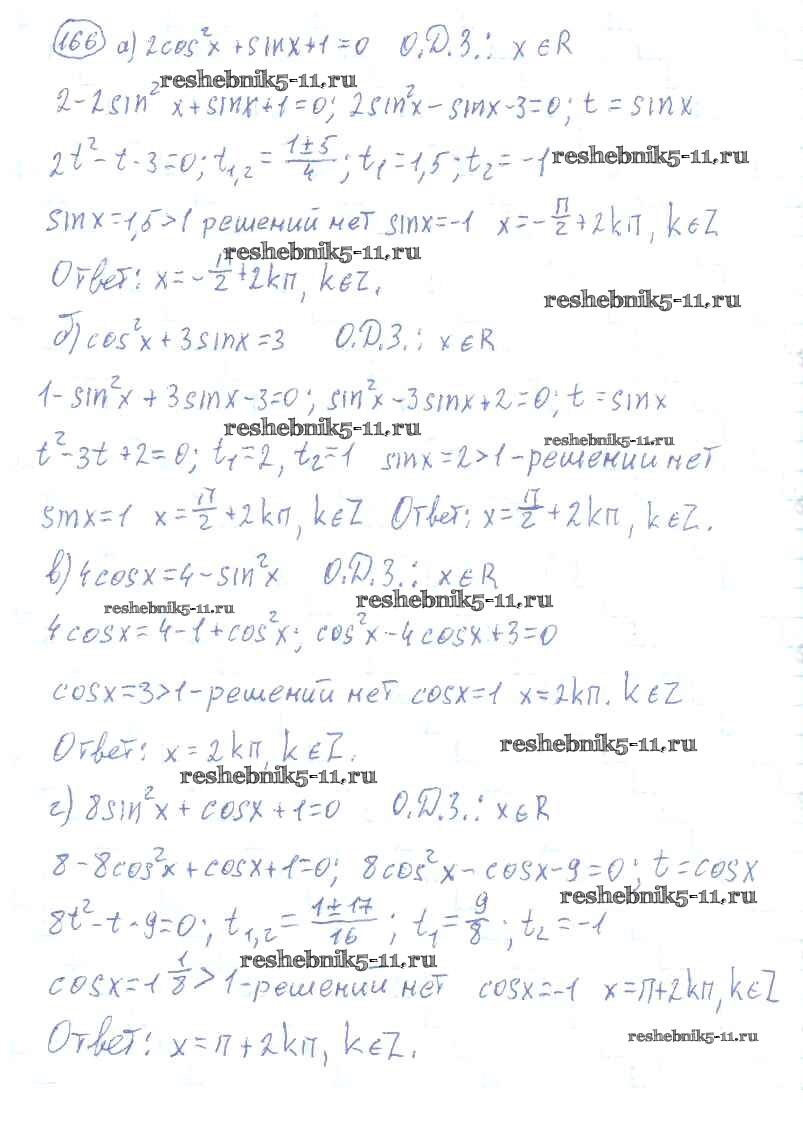 166 а) 2cos²x + sinx + 1 = 0   О.Д.З.: x ∈ R
reshebnik5-11.ru
2 - 2sin²x + sinx + 1 = 0; 2sin²x - sinx - 3 = 0; t = sinx
2t² - t - 3 = 0; t₁,₂ = (1±5)/4; t₁ = 1,5; t₂ = -1 reshebnik5-11.ru
sinx = 1,5 > 1 решений нет sinx = -1 x = -π/2 + 2kπ, k ∈ Z
reshebnik5-11.ru
Ответ: x = -π/2 + 2kπ, k ∈ Z.
reshebnik5-11.ru
б) cos²x + 3sinx = 3   О.Д.З.: x ∈ R
1 - sin²x + 3sinx - 3 = 0; sin²x - 3sinx + 2 = 0; t = sinx
reshebnik5-11.ru reshebnik5-11.ru
t² - 3t + 2 = 0; t₁ = 2, t₂ = 1 sinx = 2 > 1 - решений нет
sinx = 1 x = π/2 + 2kπ, k ∈ Z Ответ: x = π/2 + 2kπ, k ∈ Z.
в) 4cosx = 4 - sin²x   О.Д.З.: x ∈ R
reshebnik5-11.ru reshebnik5-11.ru
4cosx = 4 - 1 + cos²x; cos²x - 4cosx + 3 = 0
cosx = 3 > 1 - решений нет cosx = 1 x = 2kπ. k ∈ Z
Ответ: x = 2kπ, k ∈ Z. reshebnik5-11.ru
reshebnik5-11.ru
г) 8sin²x + cosx + 1 = 0   О.Д.З.: x ∈ R
8 - 8cos²x + cosx + 1 = 0; 8cos²x - cosx - 9 = 0; t = cosx
reshebnik5-11.ru
8t² - t - 9 = 0; t₁,₂ = (1±17)/16; t₁ = 9/8; t₂ = -1
reshebnik5-11.ru
cosx = 1 1/8 > 1 - решений нет cosx = -1 x = π + 2kπ, k ∈ Z
Ответ: x = π + 2kπ, k ∈ Z. reshebnik5-11.ru